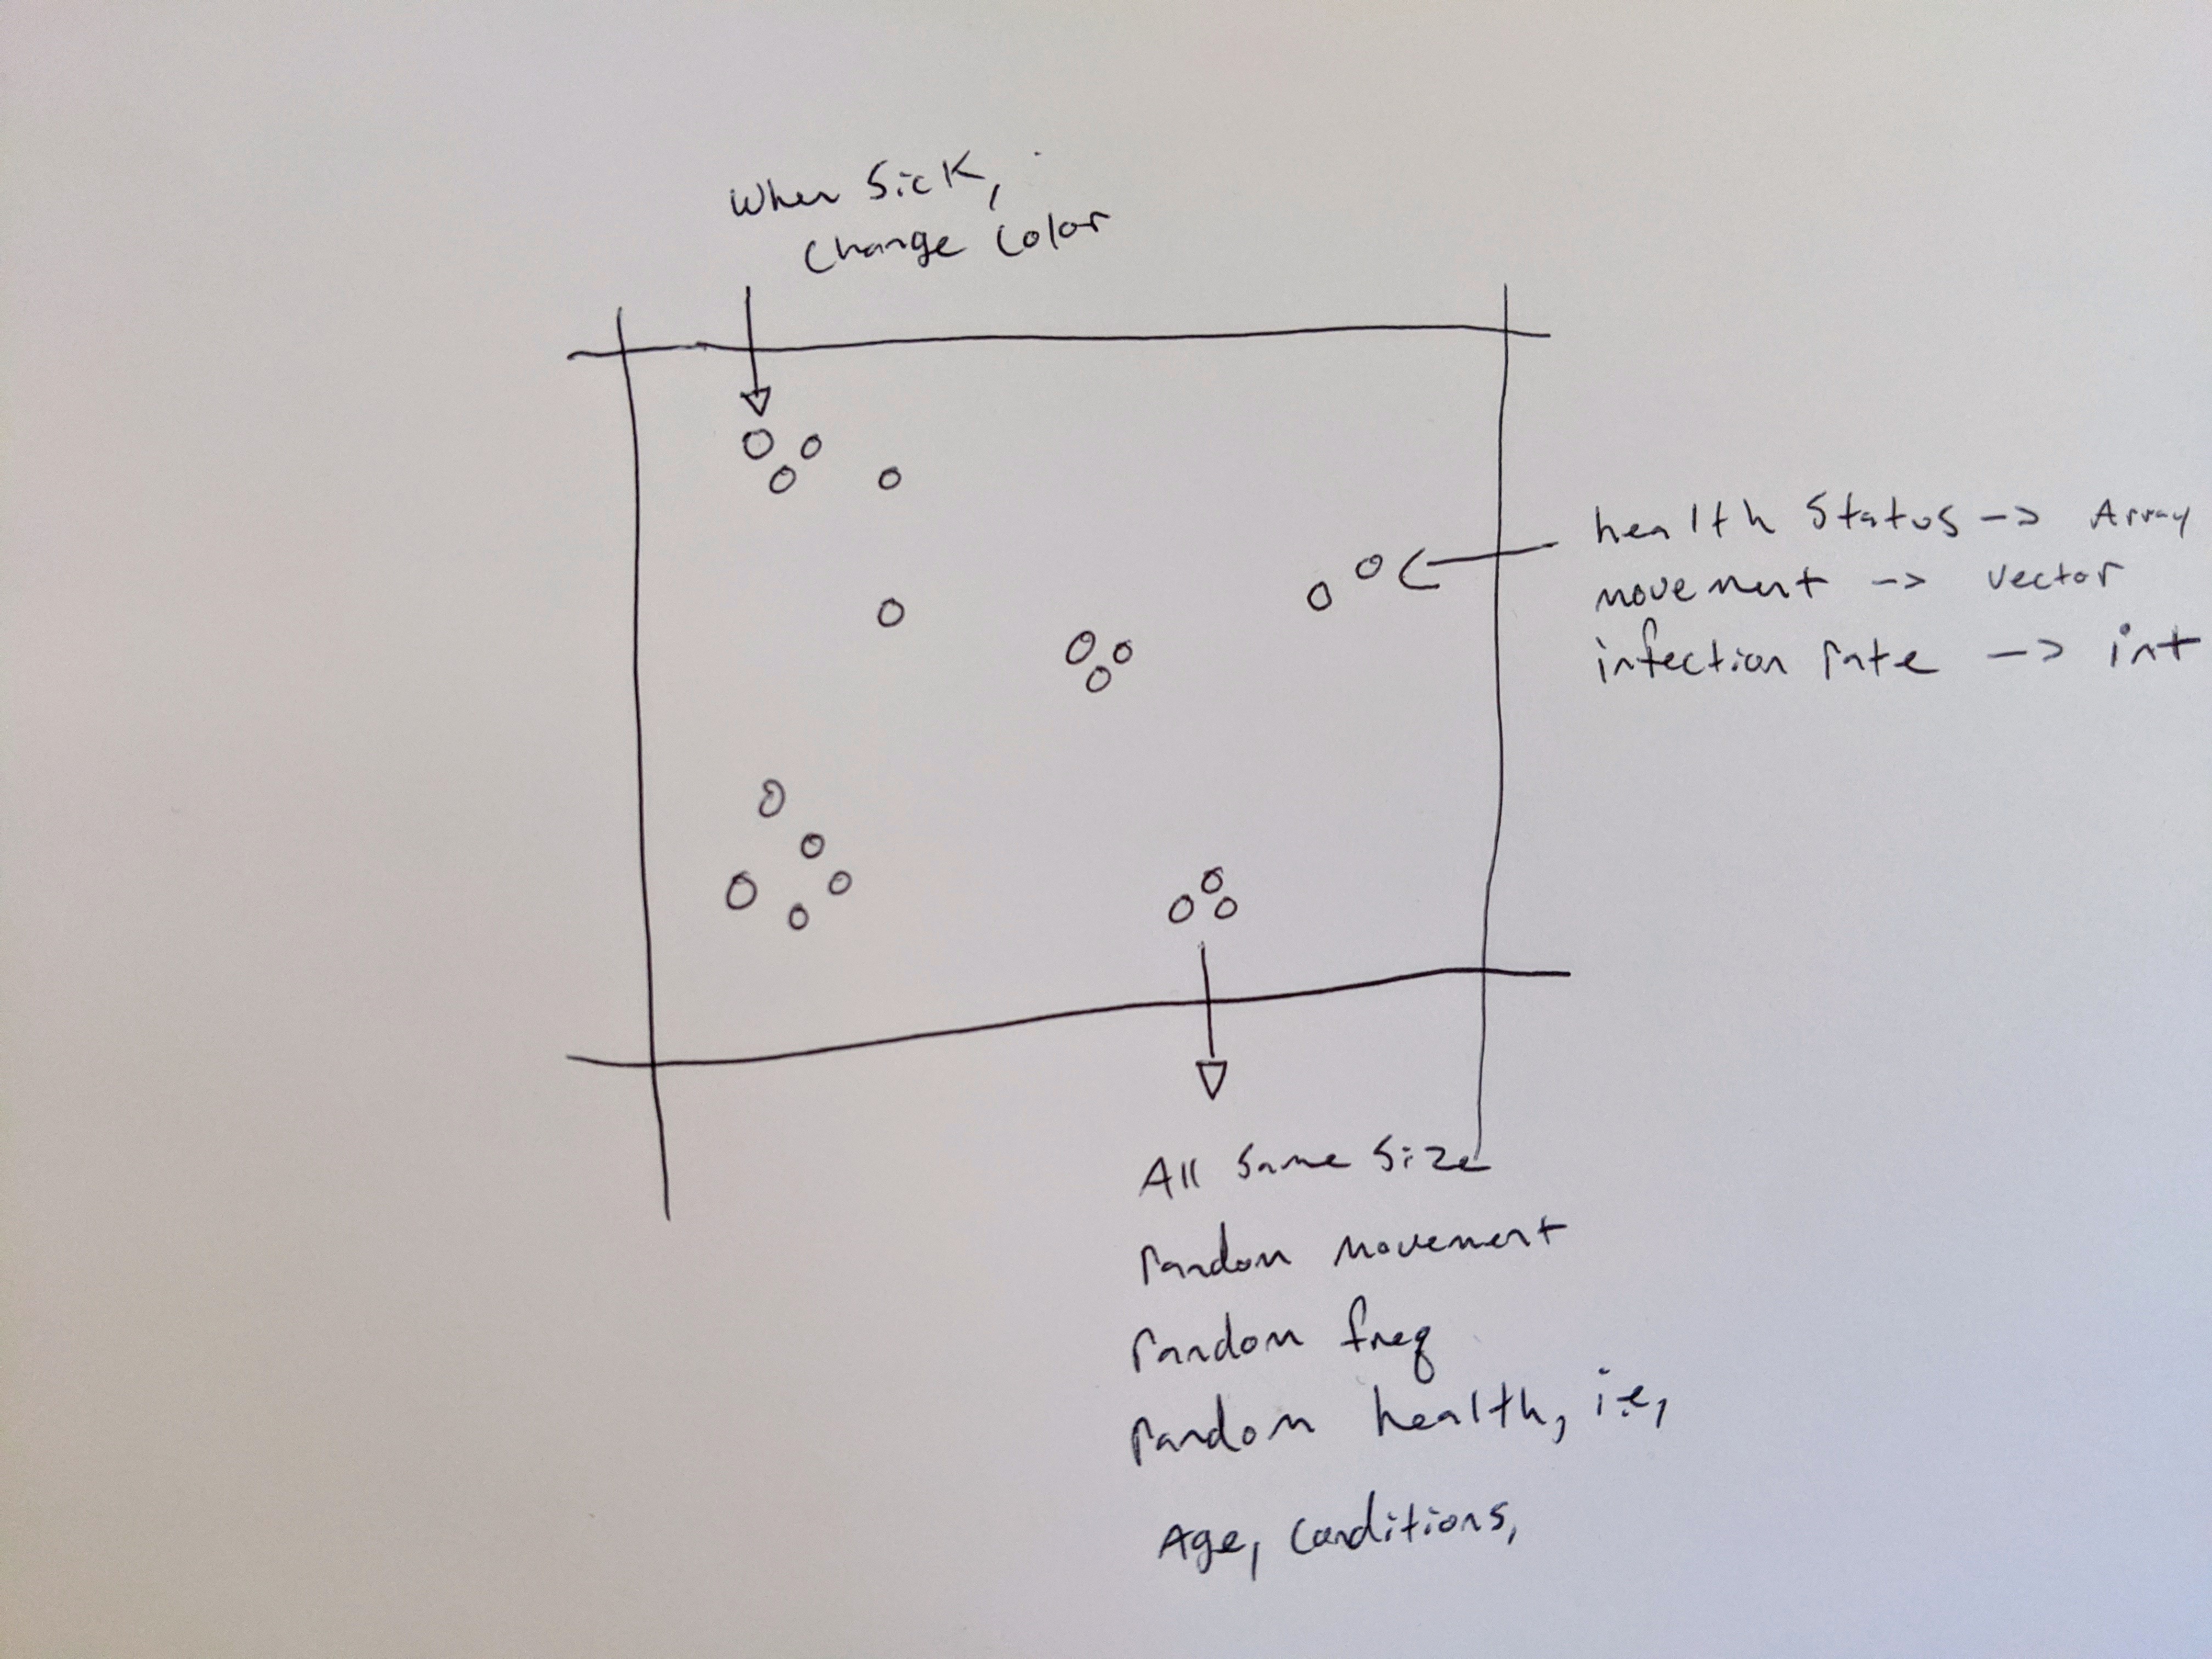 When Sick,
Change Color
health Status -> Array
movement -> vector
infection rate -> int
All Same Size
random movement
random freq
random health, i.e,
Age, conditions,